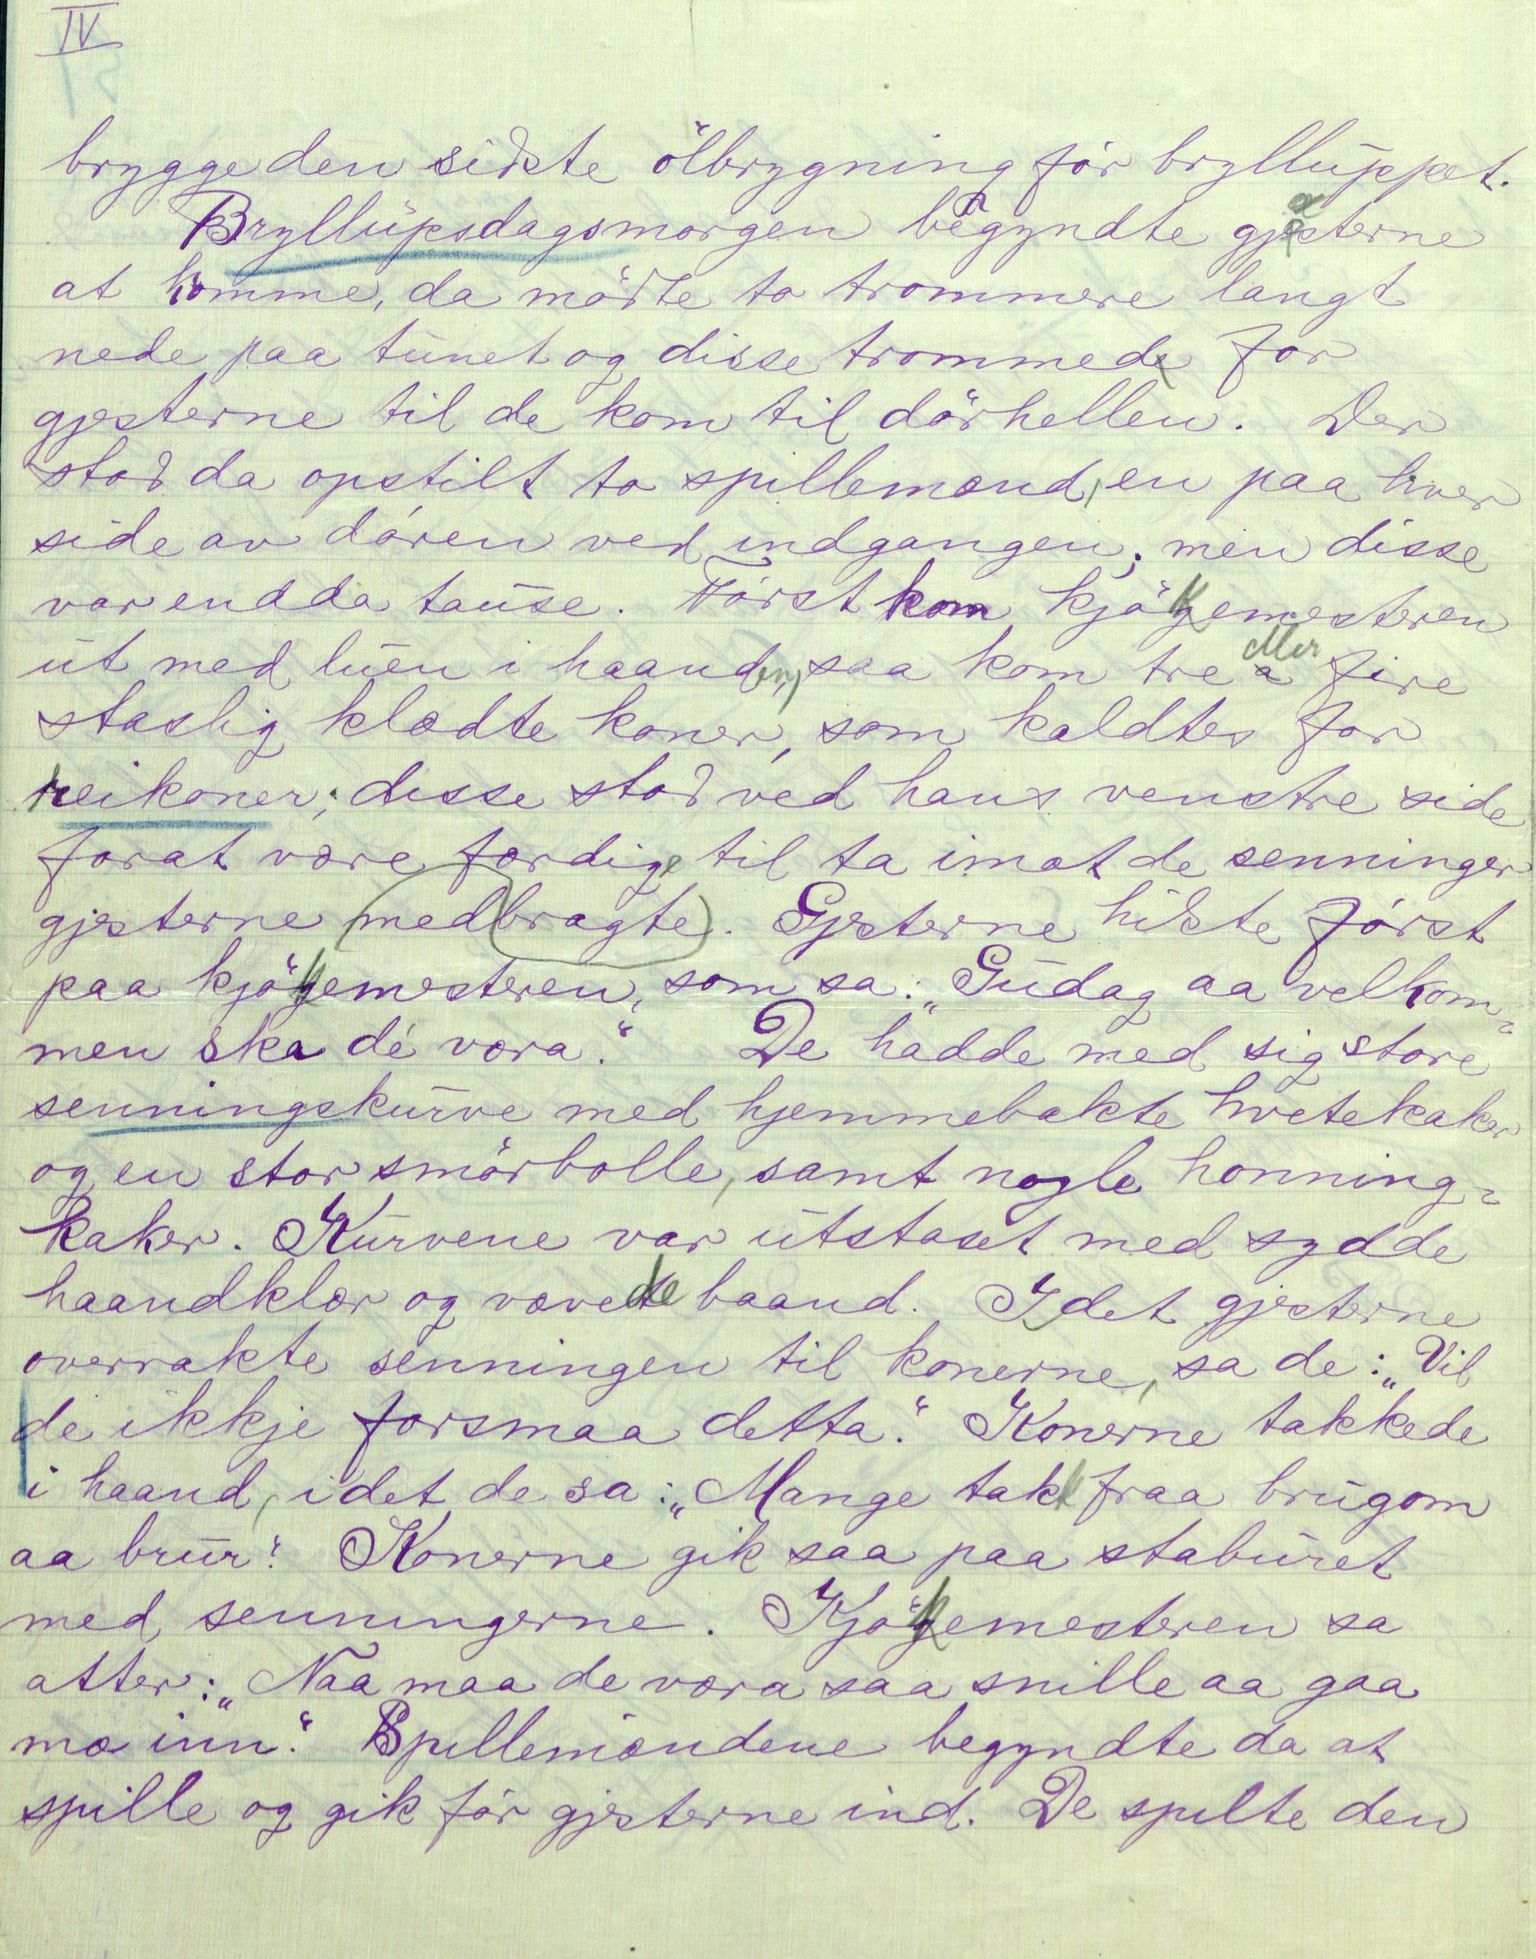 IV
brygge den sidste ölbrygning för bryllüppet.
Bryllüpsdagsmorgen begyndte gjæsterne
at komme, da mödte to trommere langt
nede paa tünet og disse trommede for
gjesterne til de kom til dörhellen. Der
stod da opstilt to spillemænd, en paa hver
side av dören ved indgangen; men disse
var endda tause. Först kom kjökemesteren
üt med lüen i haanden, saa kom tre eller fire
staslig klædte koner, som kaldtes for
reikoner; disse stod ved hans venstre side
forat være færdige til ta imot de senninger
gjesterne medbragte. Gjesterne hilste först
paa kjökemesteren, som sa: „Güdag aa velkom-
men ska dé væra.“ De hadde med sig store
senningskürve med hjemmebakte hvetekaker
og en stor smörbolle, samt nogle honning-
kaker. Kürvene var ütstaset med sydde
haandklær og vævede baand. Idet gjesterne
overrakte senningen til konerne, sa de: „Vil
de ikkje forsmaa detta.“ Konerne takkede
i haand, idet de sa: „Mange takk fraa brügom
aa brür“. Konerne gik saa paa stabüret
med senningerne. Kjökemesteren sa
atter: „Naa maa de væra saa snille aa gaa
mæ inn.“ Spillemændene begyndte da at
spille og gik för gjesterne ind. De spilte den